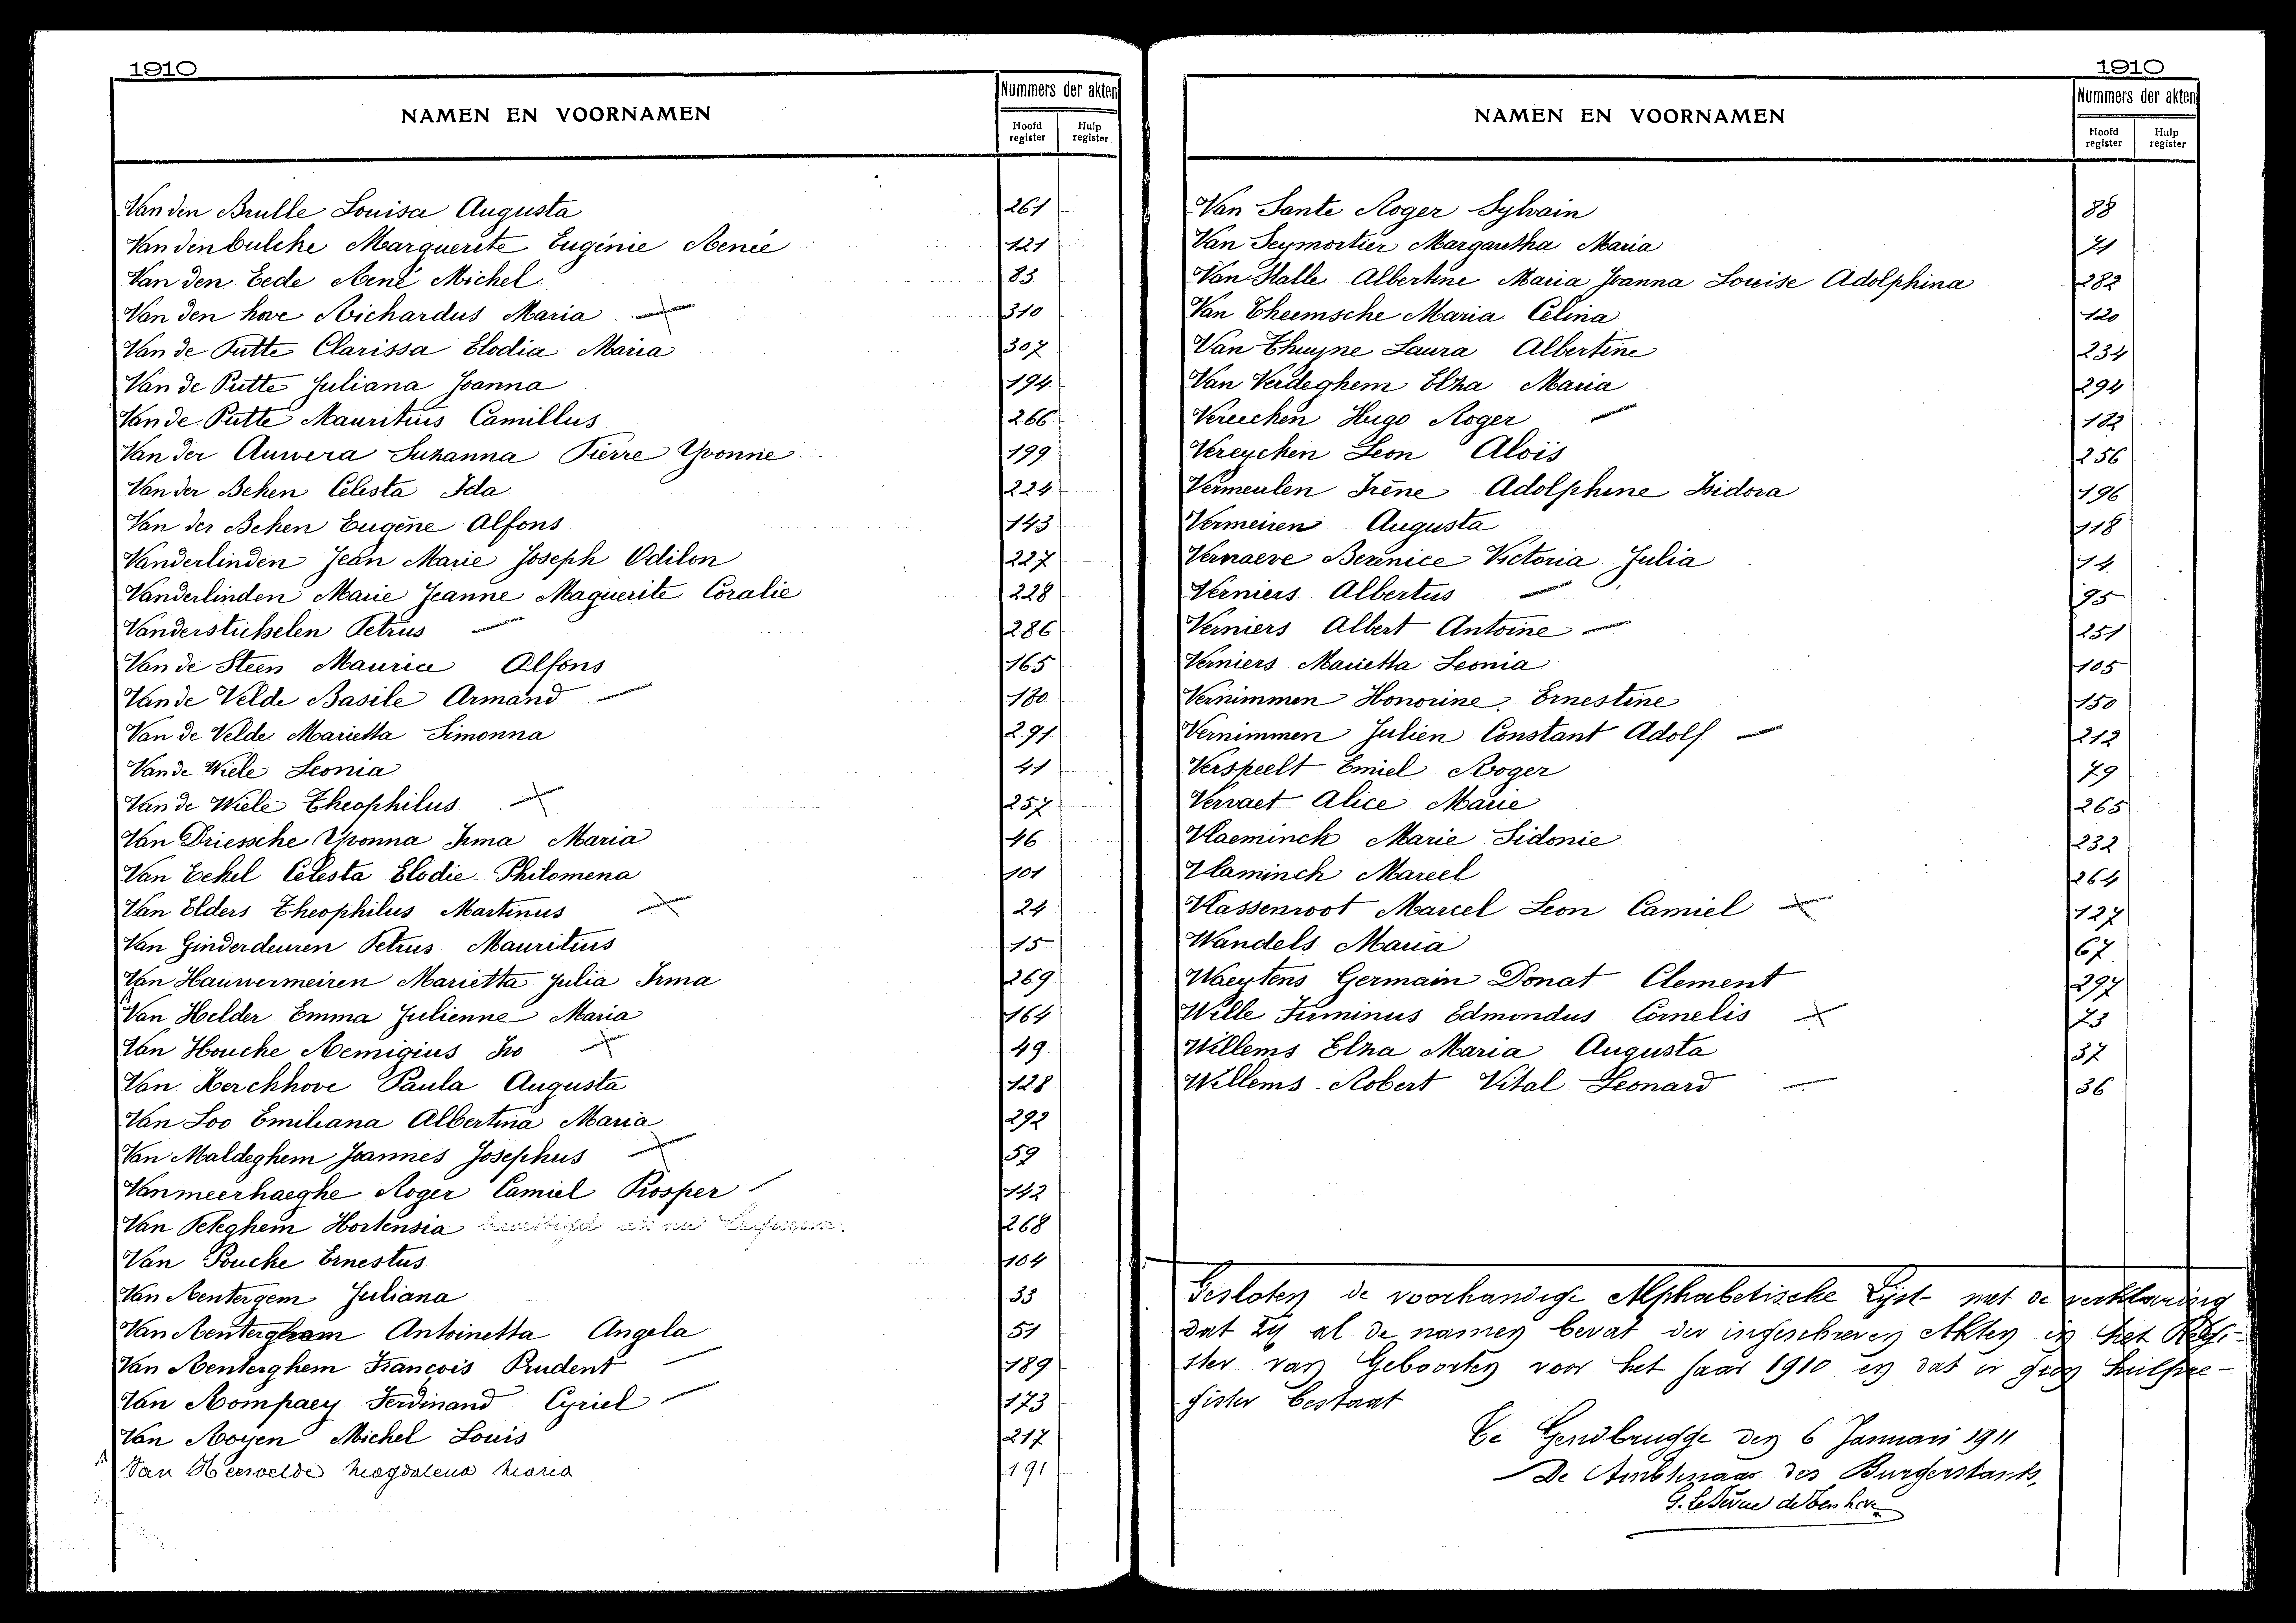 1910
NAMEN EN VOORNAMEN
Nummers der akten
Hoofd register
Hulp register
Van den Brulle Louisa Augusta 261
Van den bulcke Marguerite Eugénie Renée 121
Van den Eede René Michel 83
Van den hove Richardus Maria 310
Van de Putte Clarissa Elodia Maria 307
Van de Putte Juliana Joanna 194
Van de Putte Mauritius Camillus 266
Van der Auwera Suzanna Pierre Yvonne 199
Van der Beken Celesta Ida 224
Van der Beken Eugène Alfons 143
Vanderlinden Jean Marie Joseph Odilon 227
Vanderlinden Marie Jeanne Maguerite Coralie 228
Vanderstichelen Petrus 286
Van de Steen Maurice Alfons 165
Van de Velde Basile Armand 180
Van de Velde Marietta Simonna 291
Van de Wiele Leonia 41
Van de Wiele Theophilus 257
Van Driessche Yvonna Irma Maria 46
Van Eekel Celesta Elodie Philomena 101
Van Elders Theophilus Martinus 24
Van Ginderdeuren Petrus Mauritius 15
Van Hauwermeiren Marietta Julia Irma 269
Van Helder Emma Julienne Maria 164
Van Houcke Remigius Ivo 49
Van Kerckhove Paula Augusta 128
Van Loo Emiliana Albertina Maria 292
Van Maldeghem Joannes Josephus 59
Vanmeerhaeghe Roger Camiel Prosper 142
Van Peteghem Hortensia 268
Van Poucke Ernestus 104
Van Rentergem Juliana 33
Van Renterghem Antoinetta Angela 51
Van Renterghem François Prudent 189
Van Rompaey Ferdinand Cyriel 173
Van Royen Michel Louis 217
Van Heervelde Magdalena Maria 191
1910
NAMEN EN VOORNAMEN
Nummers der akten
Hoofd register
Hulp register
Van Sante Roger Sylvain 88
Van Seymortier Margaretha Maria 21
Van Stalle Albertine Maria Joanna Louise Adolphina 282
Van Theemsche Maria Celina 120
Van Thuyne Laura Albertine 234
Van Verdeghem Elza Maria 294
Vereecken Hugo Roger 182
Vereycken Leon Aloïs 256
Vermeulen Irène Adolphine Isidora 196
Vermeiren Augusta 118
Vernaeve Berenice Victoria Julia 14
Verniers Albertus 95
Verniers Albert Antoine 251
Verniers Marietta Leonia 105
Vernimmen Honorine Ernestine 150
Vernimmen Julien Constant Adolf 212
Verspeelt Emiel Roger 79
Verraet Alice Marie 265
Vlaeminck Marie Sidonie 232
Vlaminck Marcel 264
Vlassenroot Marcel Leon Camiel 127
Wandels Maria 67
Waeytens Germain Donat Clement 297
Wille Firminus Edmondus Cornelis 73
Willems Elza Maria Augusta 37
Willems Robert Vital Leonard 36
Gesloten de voorhandige Alphabetische Lijst met de verklaring
dat zij al de namen bevat der ingeschreven Akten in het Regi-
ster van Geboorten voor het jaar 1910 en dat er geen hulpre-
gister bestaat
Te Gendbrugge den 6 Januari 1911
De Ambtenaar des Burgerstands,